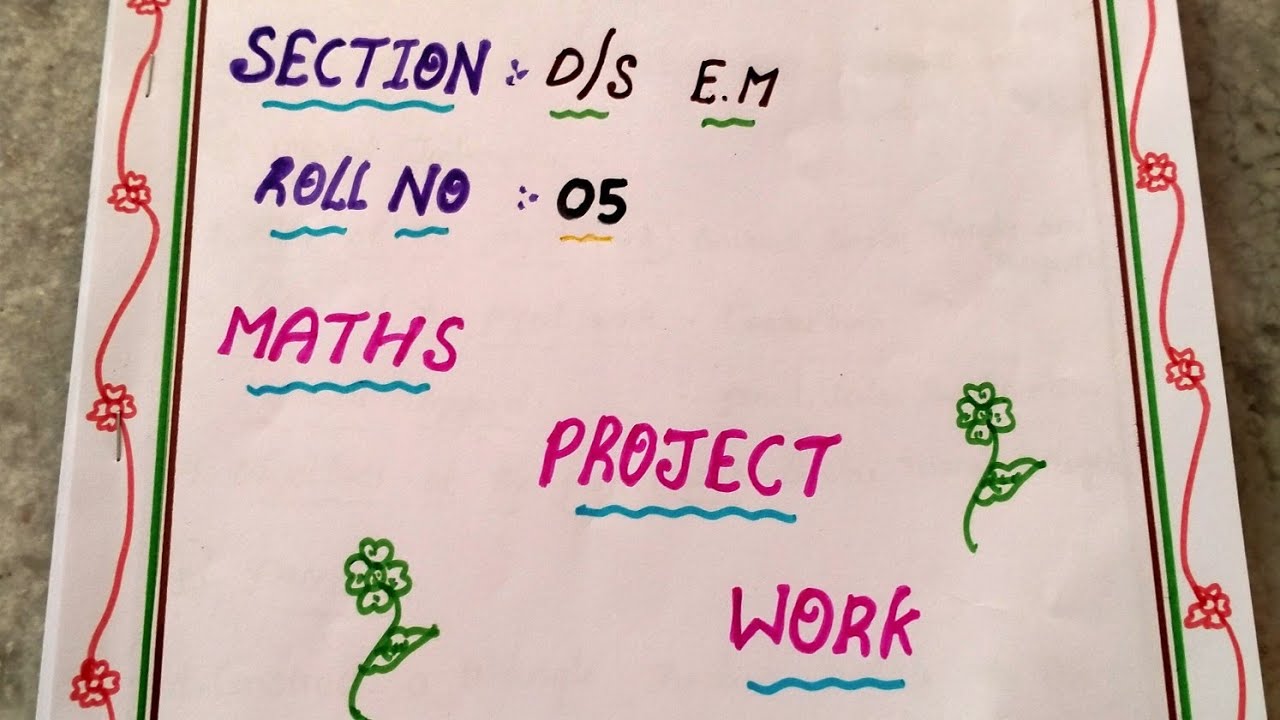 SECTION :- D/S E.M
ROLL NO :- 05
MATHS
PROJECT
WORK